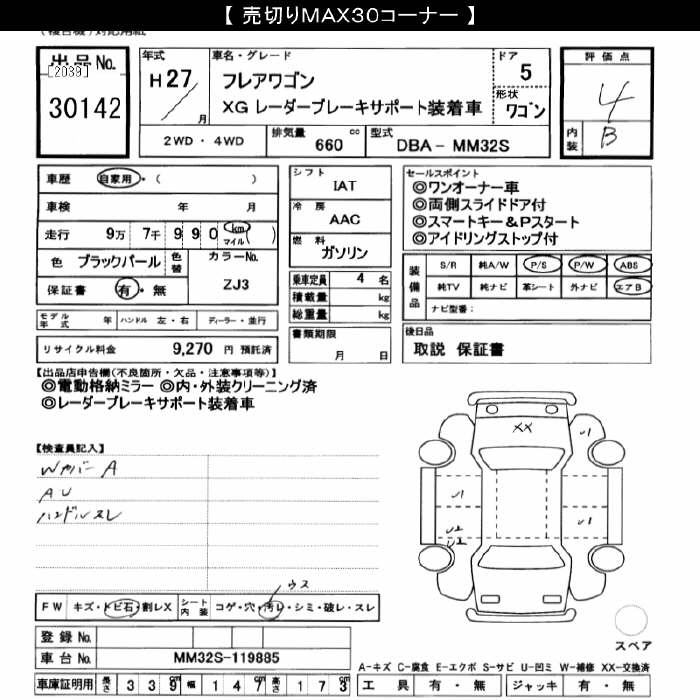 【 売切りMAX30コーナー 】
出品No.
[2039]
30142
年式
H27/月
車名・グレード
フレアワゴン
XG レーダーブレーキサポート装着車
ドア
5
形状
ワゴン
評価点
4
内装
B
2WD・4WD
排気量 660 cc
型式 DBA- MM32S
車歴 自家用・( )
車検 年 月
走行 9万 7千 9 9 0 (km マイル)
色 ブラックパール
色替
カラーNo.
ZJ3
保証書 有・無
モデル年式 年 ハンドル 左・右 ディーラー・並行
リサイクル料金 9,270 円 預託済
シフト
IAT
冷房
AAC
燃料
ガソリン
乗車定員 4 名
積載量 kg
総重量 kg
書類期限
月 日
セールスポイント
◎ワンオーナー車
◎両側スライドドア付
◎スマートキー&Pスタート
◎アイドリングストップ付
装備品
S/R 純A/W P/S P/W ABS
純TV 純ナビ 革シート 外ナビ エアB
ナビ型番:
後日品
取説 保証書
【出品店申告欄(不良箇所・欠品・注意事項等)】
◎電動格納ミラー ◎内・外装クリーニング済
◎レーダーブレーキサポート装着車
【検査員記入】
Wカバー A
AU
ハンドルスレ
ウス
FW キズ・トビ石・割レX
シート内装 コゲ・穴・汚レ・シミ・破レ・スレ
XX
スペア
登録No.
車台No. MM32S-119885
A-キズ C-腐食 E-エクボ S-サビ U-凹ミ W-補修 XX-交換済
車庫証明用 長さ 339cm 幅 147cm 高さ 173cm
工具 有・無 ジャッキ 有・無